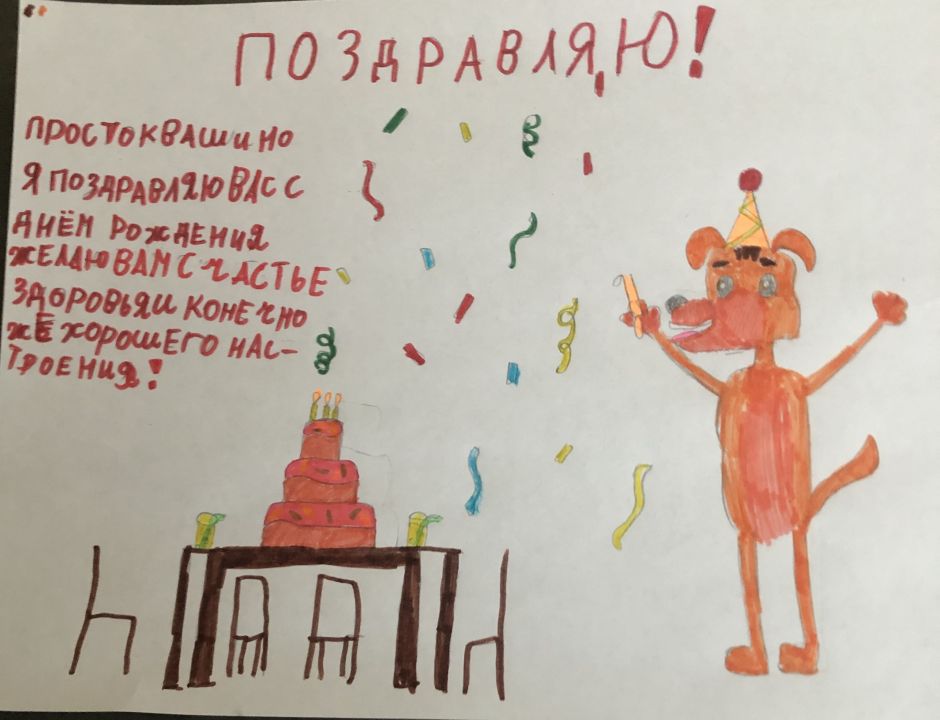 ПОЗДРАВЛЯЮ!
ПРОСТОКВАШИНО
Я ПОЗДРАВЛЯЮ ВАС С
ДНЁМ РОЖДЕНИЯ
ЖЕЛАЮ ВАМ СЧАСТЬЕ
ЗДОРОВЬЯ И КОНЕЧНО
ЖЕ ХОРОШЕГО НАС-
ТРОЕНИЯ!
6+